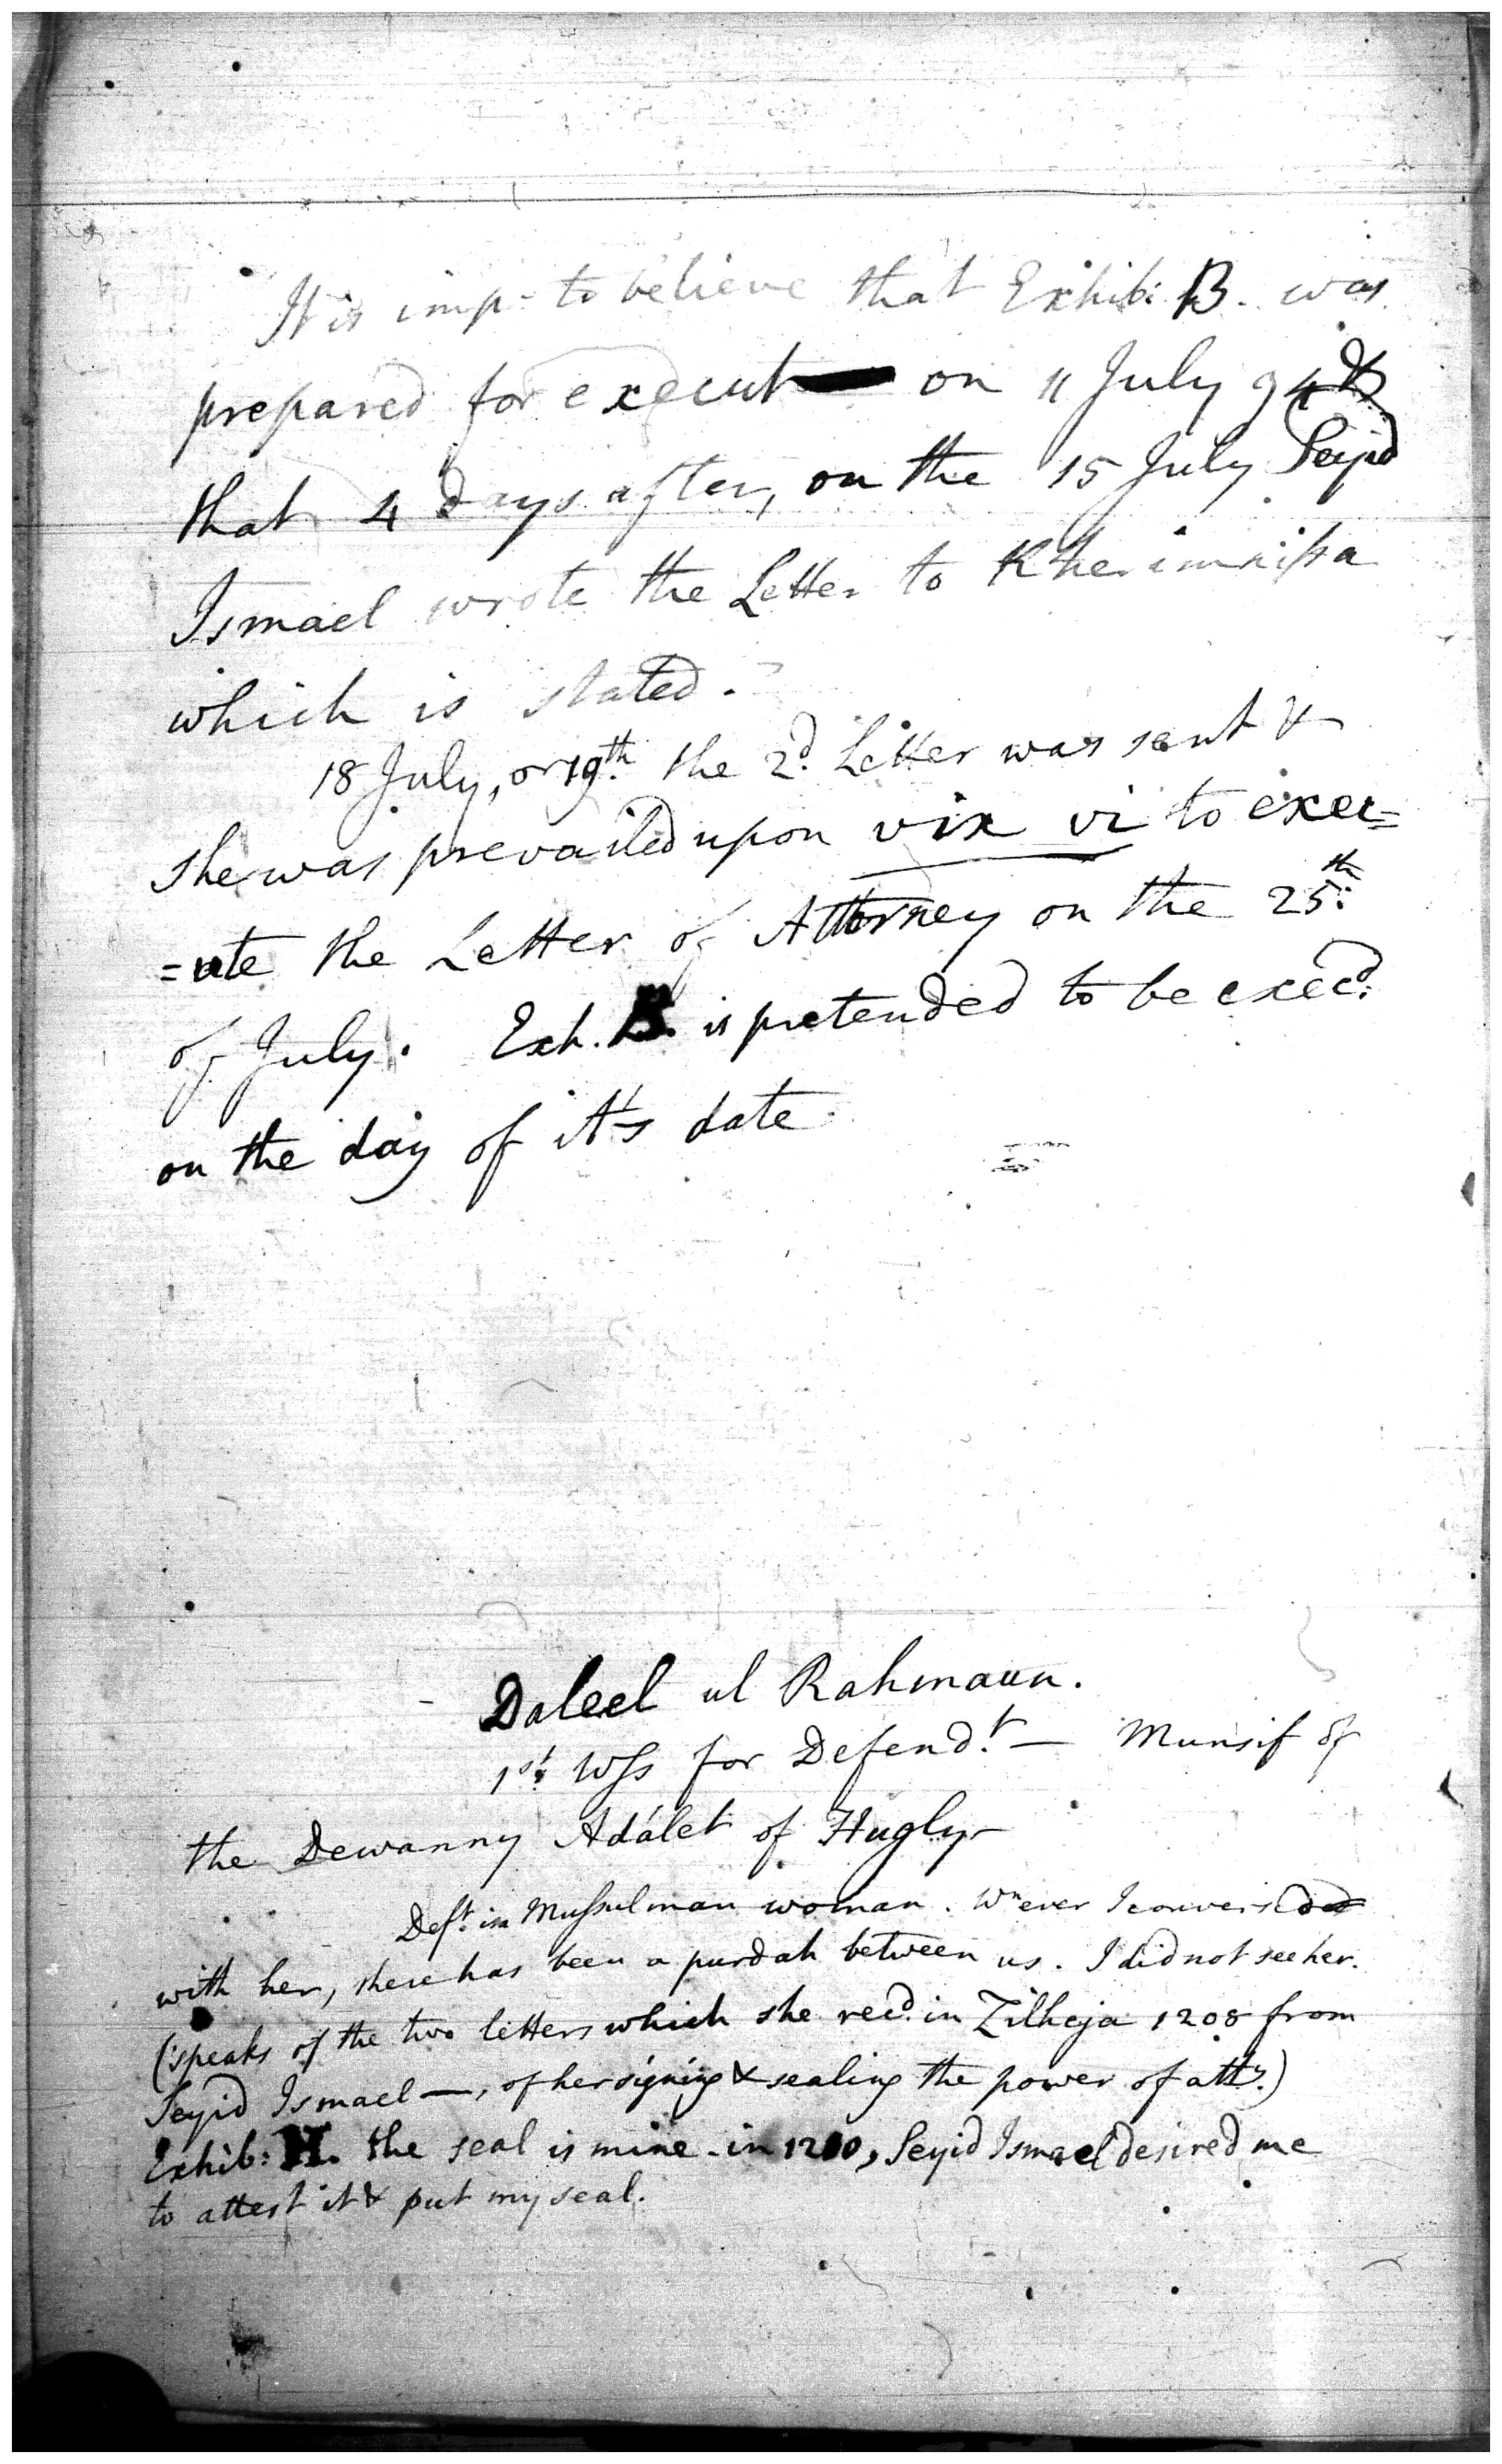 It is imp. to believe that Exhib: B. was
prepared for execut on 11 July 94 &
that 4 days after, on the 15 July Seyid
Ismael wrote the Letter to Kherimnissa
which is stated.
18 July, or 19th. the 2d. Letter was sent &
she was prevailed upon vix vi to exec=
=ute the Letter of Attorney on the 25th:
of July. Exh. B. is pretended to be execd.
on the day of it's date
Daleel ul Rahmaun.
1st. Wss for Defendt. — Munsif of
the Dewanny Adálet of Hugly—
Deft. is Mussulman woman. Wnever I conversed
with her, there has been a purdah between us. I did not see her.
(speaks of the two letters which she recd. in Zilheja 1208 from
Seyid Ismael —, of her signing & sealing the power of atty.)
Exhib: H. the seal is mine - in 1200, Seyid Ismael desired me
to attest it & put my seal.